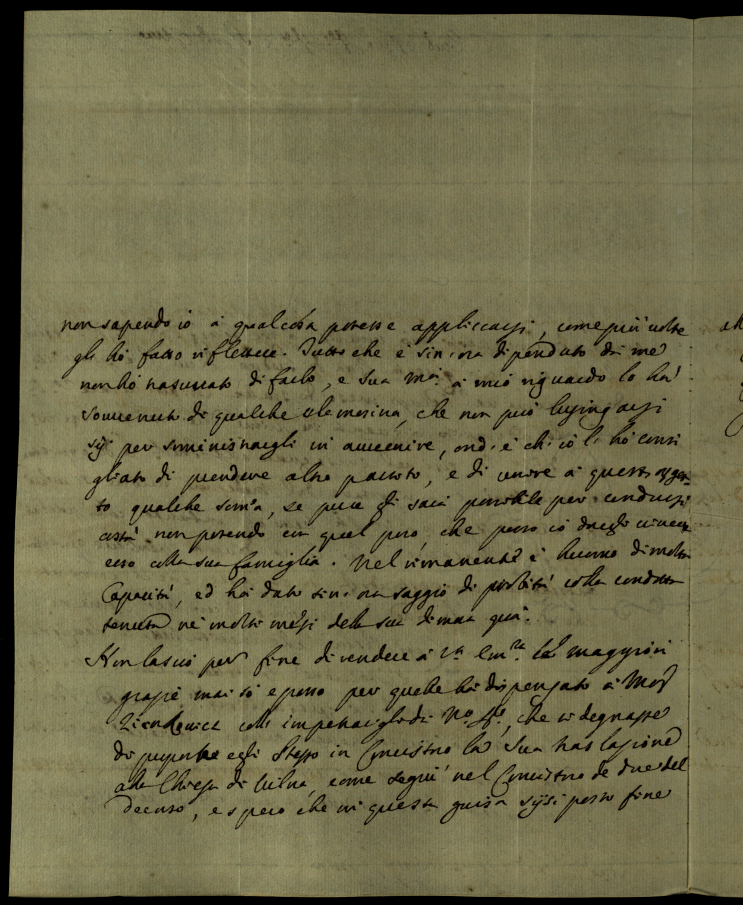 non sapendo io a qual cosa potesse appliccarsi, come più volte
gli hò fatto riflettere. Tutto che è sin' ora dipenduto da me
non hò trascurato di farlo, e Sua Mtà. a mio riguardo lo hà
sovvenuto di qualche elemosina, che non può lusingarsi
per somministrargli in avvenire, ond' è ch' io l' hò consi
gliato di prendere altro partito, e di unire a questo ogget
to qualche somma, se pure gli sarà possibile per condursi
costà non potendo con quel poco, che posso io dargli vivere
esso colla sua famiglia. Nel rimanente è huomo di molta
Capacità, ed hà dato sin' ora saggio di probità colla condotta
tenuta ne' molti mesi della sua dimora quì.
Non lascio per fine di rendere a Vra. Emza. le maggiori
grazie che mai sò e posso per quelle hà dispensato a Mosr
colle impetrargli da No. Sre., che si degnasse
di proporre egli stesso in Concistoro la sua traslazione
alla Chiesa di Vilna, come seguì nel Concistoro de' due del
decorso, e spero che in questa guisa siasi posto fine